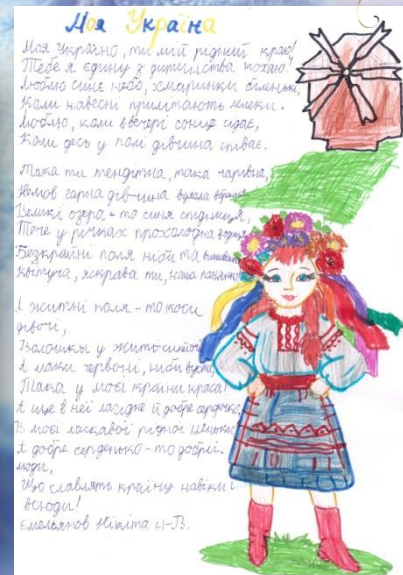 Моя Україна
Моя Україно, ти мій рідний краю!
Тебе я єдину з дитинства кохаю!
Люблю синє небо, хмаринки біленькі,
Коли навесні прилітають лелеки.
Люблю, коли ввечері сонце сідає,
Коли десь у полі дівчина співає.
Така ти тендітна, така чарівна,
Немов гарна дівчина вдягла
Великі озера - то синя спідниця,
Тече у річках прохолодна водиця
Безкрайні поля ніби та
яскрава ти, наша панянко
А житні поля - то коси
дівочі,
Волошки у житі
А маки червоні, ніби вуста,
Така у моєї країни краса!
А ще в неї лагідне й добре сердечко,
В моєї ласкавої рідної неньки
А добре серденько - то добрії
люди,
Що славлять країну навіки і
всюди!
Ємельянов Нікіта 4-В.